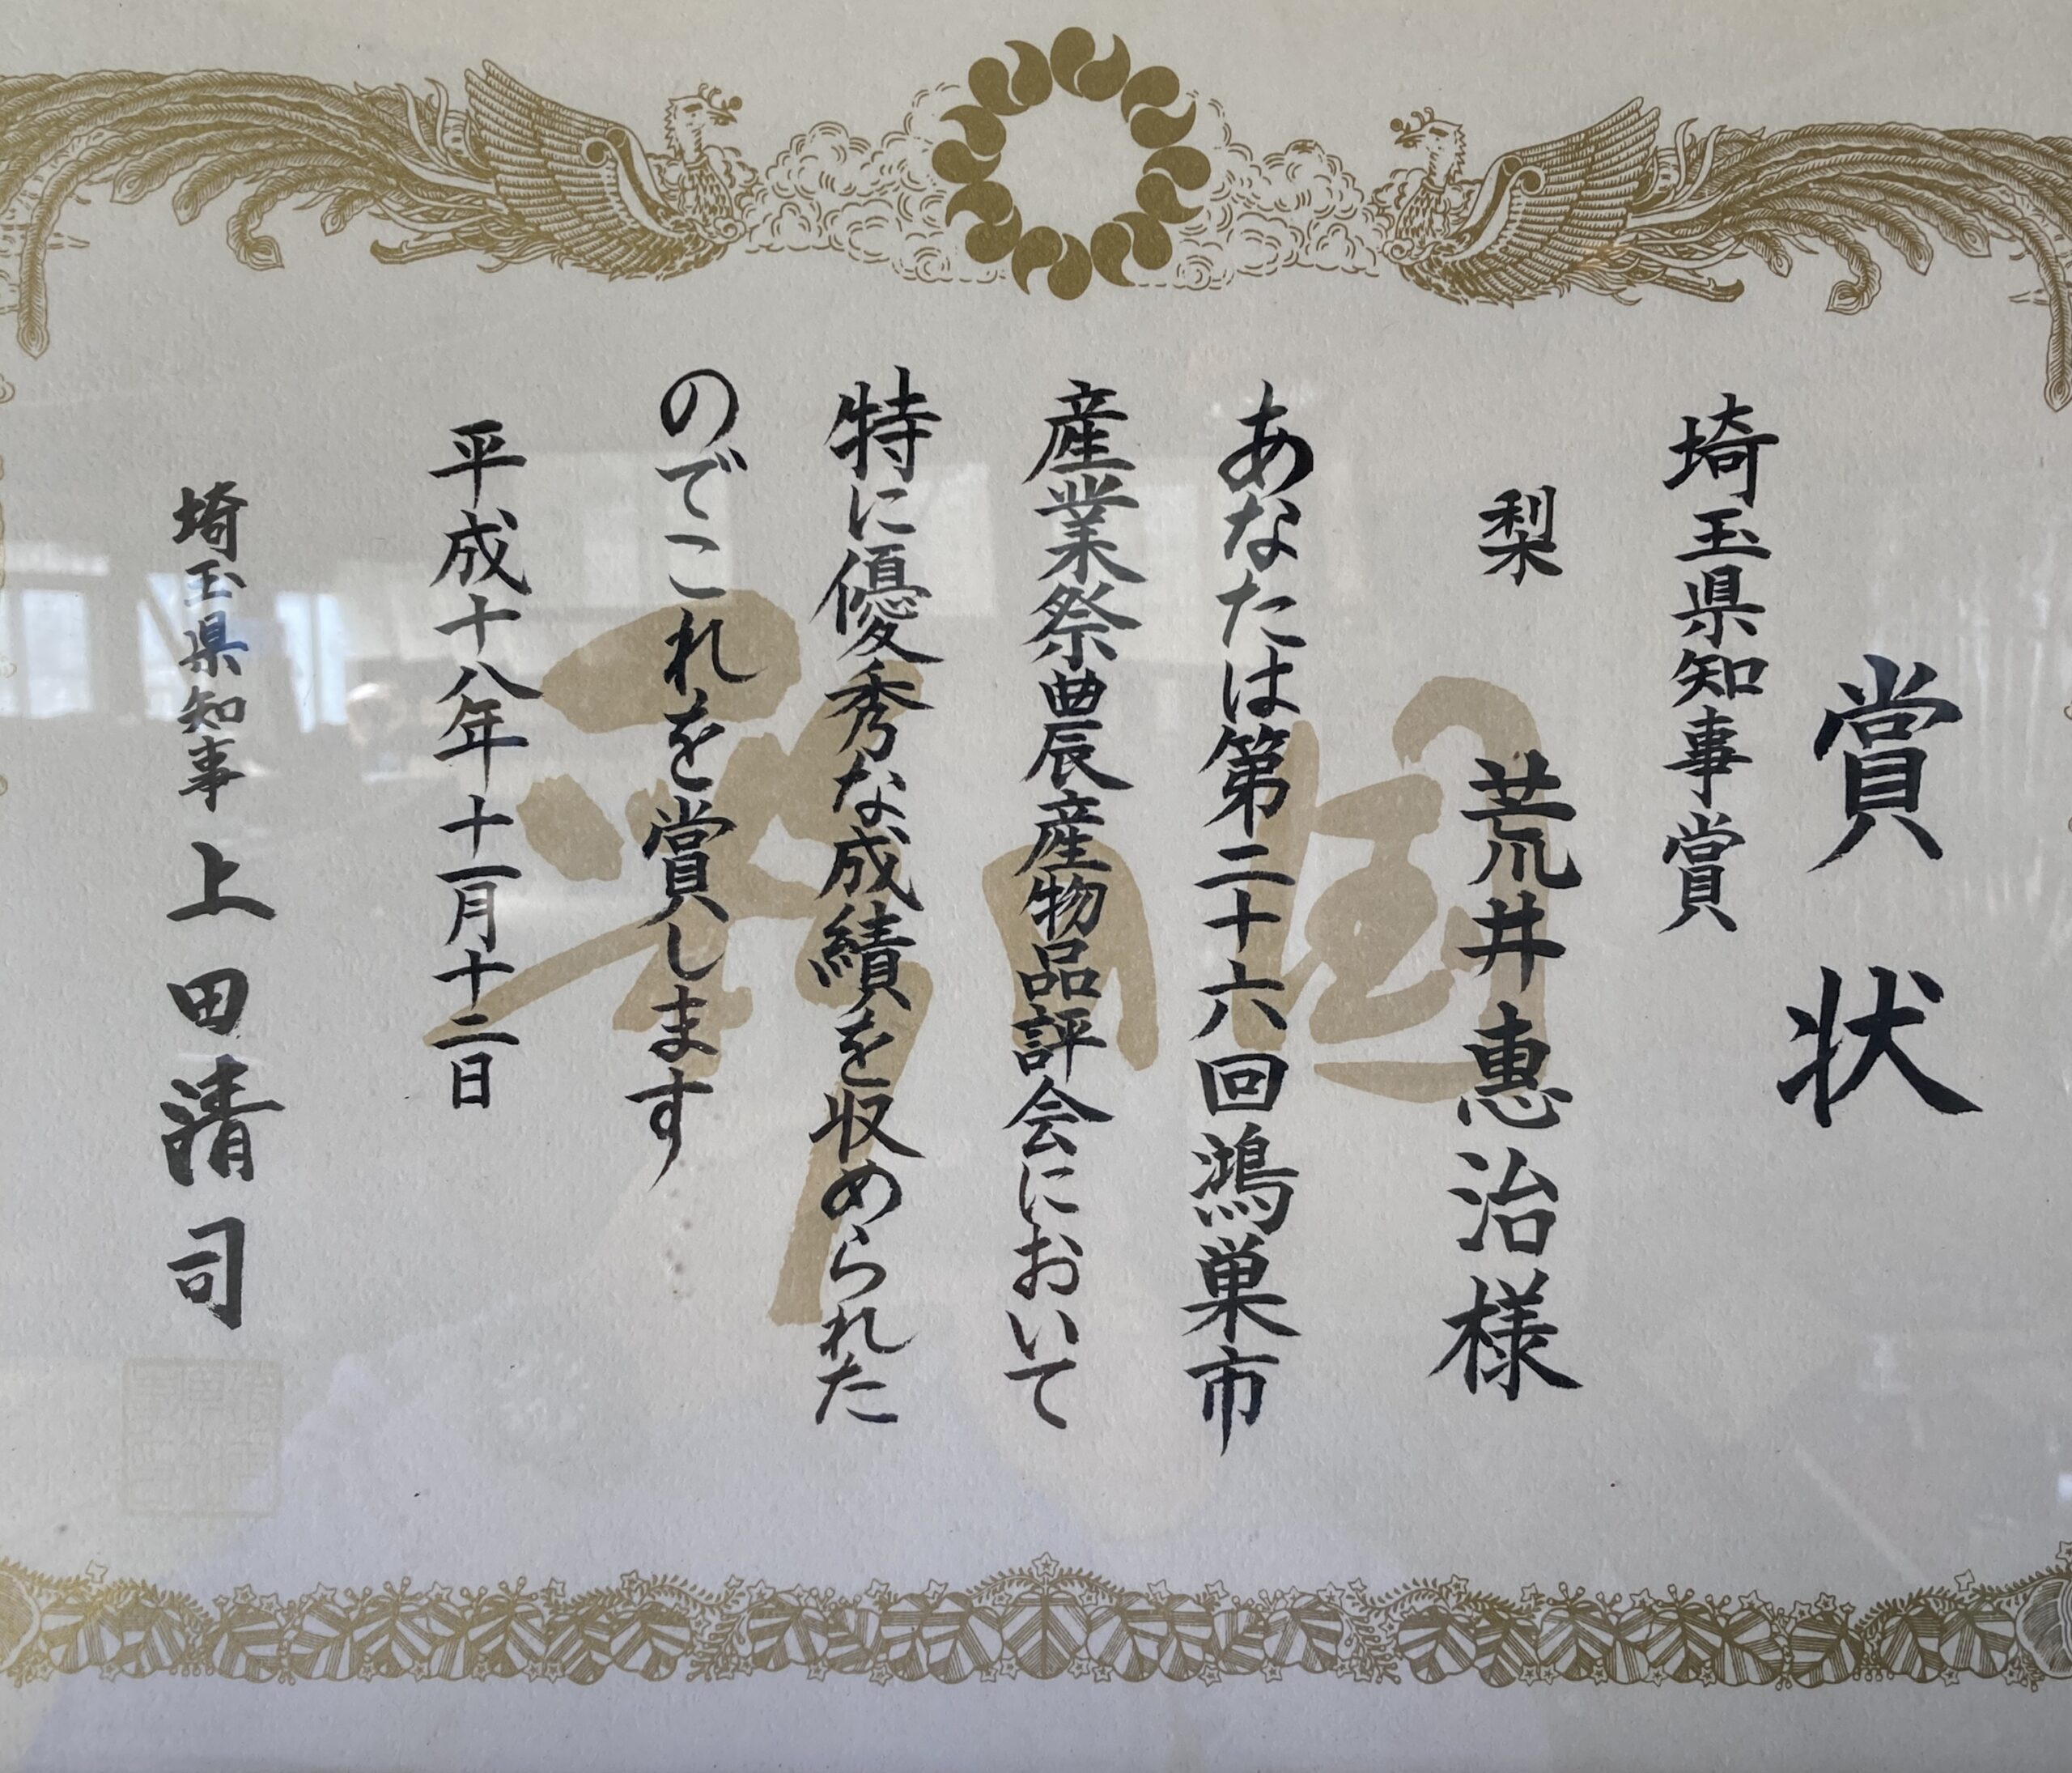 賞状
埼玉県知事賞
梨
荒井惠治様
あなたは第二十六回鴻巣市
産業祭農産物品評会において
特に優秀な成績を収められた
のでこれを賞します
平成十八年十一月十二日
埼玉県知事 上田清司